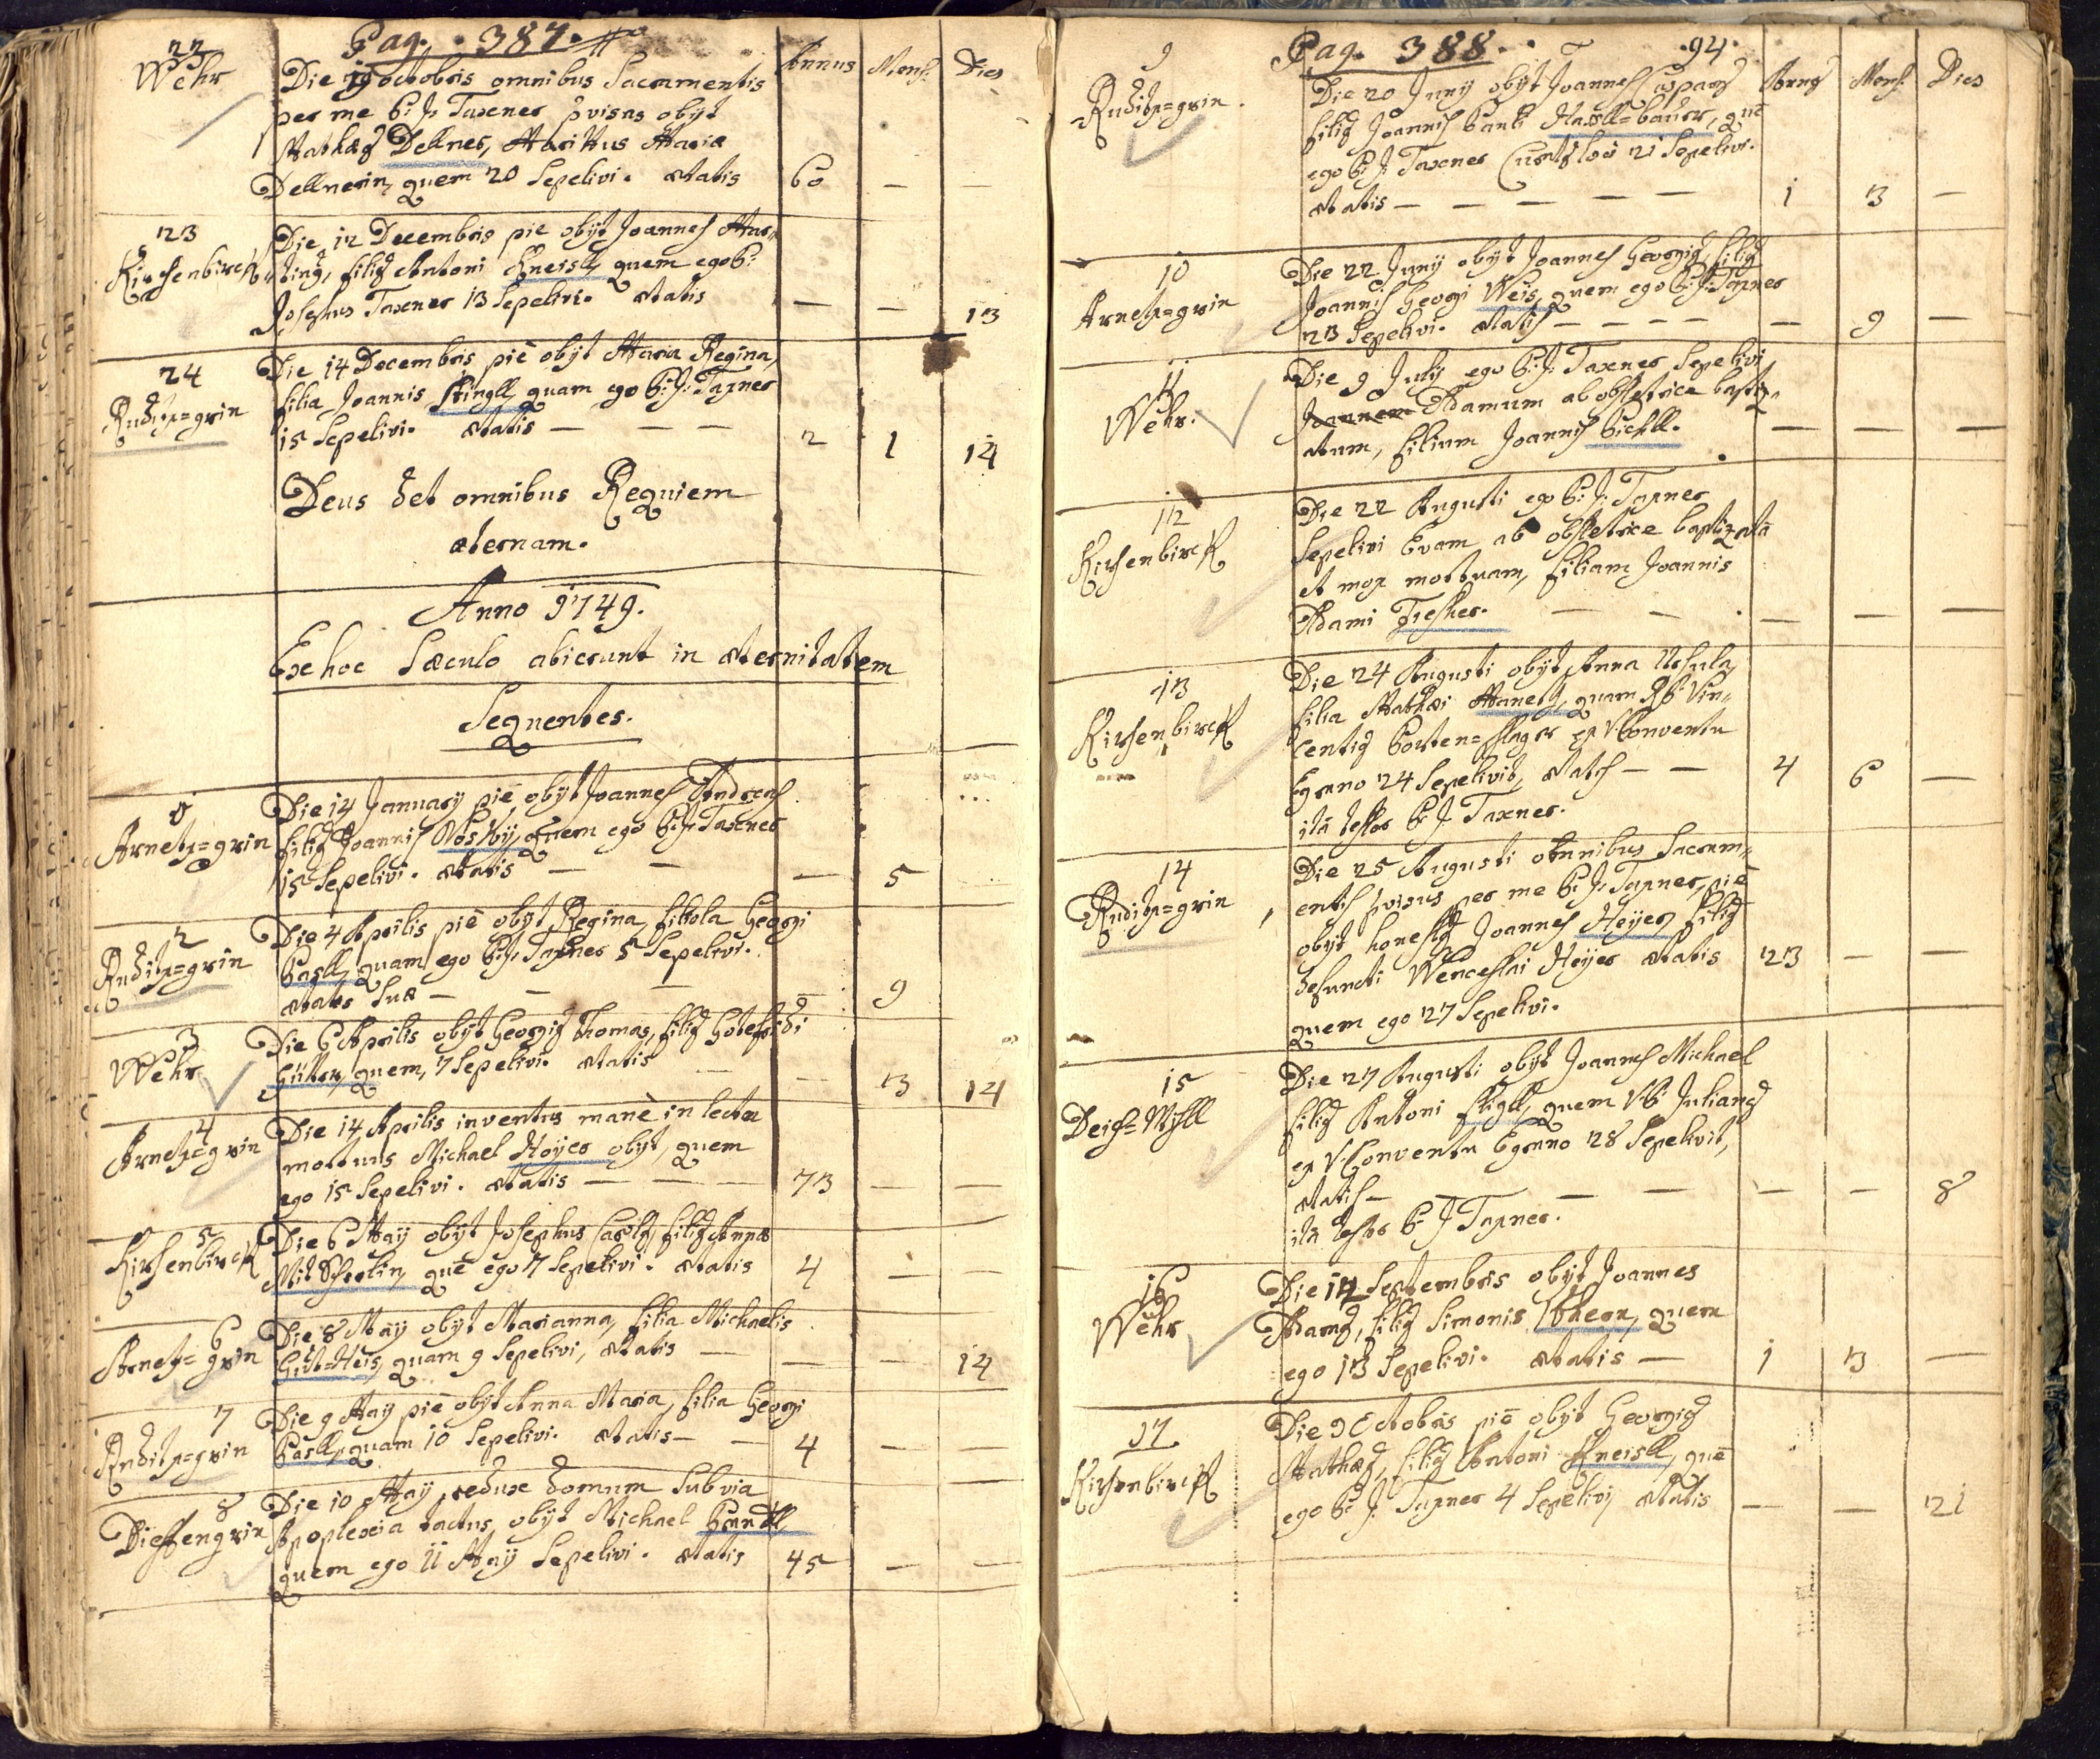 Pag. 387.
Annus Mens. Dies
22
Wehr
Die 19 octobris omnibus Sacramentis
per me P: J: Taxner pvisus obijt
Mathæus Dellner, Maritus Mariæ
Dellnerin, quem 20 Sepelivi. ætatis 60 — —
23
Kirsenbirck
Die 12 Decembris pie obijt Joannes Mar„
tinus, filius Antoni Kneisll, quem ego P:
Josephus Taxner 13 Sepelivi. ætatis — — 13
24
Ruditzgrin
Die 14 Decembris piè obijt Maria Regina,
filia Joannis Stingll, quam ego P: J: Taxner
15 Sepelivi. ætatis — — — 2 1 14
Deus det omnibus Requiem
æternam.
Anno 1749.
Ex hoc Sæculo abierunt in æternitatem
Sequentes.
1
Arnetz=grin
Die 14 Januarij piè obijt Joannes Andreas
filius Joannis, quem ego P: J: Taxner
15 Sepelivi. ætatis — — — 5
2
Ruditz=grin
Die 4 Aprilis piè obijt Regina, filiola Georgi
Pasll, quam ego P: J: Taxner 5 Sepelivi.
ætatis suæ — — — — 9
3
Wehr
Die 6 Aprilis obijt Georgius Thomas, filius Gotefridi
Gütter, quem 7 Sepelivi. ætatis — — 3 14
4
Arnetz=grin
Die 14 Aprilis inventus manè in lecto
mortuus Michael Hoÿer obijt, quem
ego 15 Sepelivi. ætatis — — — 73 — —
5
Kirsenbirck
Die 6 Maij obijt Josephus Carolus, filius Annæ
quē ego 7 Sepelivi. ætatis 4 — —
6
Arnetz=grin
Die 8 Maij obijt Marianna, filia Michaelis
Gut=Heis, quam 9 Sepelivi, ætatis — — — 14
7
Ruditz=grin
Die 9 Maij piè obijt Anna Maria, filia Georgi
Pasll, quam 10 Sepelivi. ætatis — — 4 — —
8
Dieffengrin
Die 10 Maij redux domum Sub via
Apoplexia tactus, obijt Michael
quem ego 11 Maij Sepelivi. ætatis 45 — —
Pag. 388. 94.
Annus Mens. Dies
9
Ruditz=grin.
Die 20 Junij obijt Joannes Casparus
filius Joannis Pauli Hasll=bauer, quē
ego P: J: Taxner Curatus loci 21 Sepelivi.
ætatis — — — — — 1 3 —
10
Arnetz=grin
Die 22 Junij obijt Joannes Georgius, filius
Joannis Georgi Weis, quem ego P: J: Taxner
23 Sepelivi. ætatis — — — — — 9 —
11
Wehr.
Die 9 Julij ego P: J: Taxner Sepelivi
Joannem Adamum ab obstetrice bapti„
atum, filium Joannis Bichll. — — —
12
Kirsenbirck
Die 22 Augusti ego P: J: Taxner
Sepelivi Evam ab obstetrice baptizatā
et mox mortuam, filiam Joannis
Adami Fischer. — — — — —
13
Kirsenbirck
Die 24 Augusti obijt Anna Ursula,
filia Mathæi, quam R: P: Vin„
centius ex V: Conventu
Egrano 24 Sepelivit, ætatis — — 4 6 —
ità testor P: J: Taxner.
14
Ruditz=grin
Die 25 Augusti omnibus Sacram„
entis pvisus per me P: J: Taxner, piè
obijt honestus Joannes Heÿer, filius
defuncti Wenceslai Heÿer ætatis 23 — —
quem ego 27 Sepelivi.
15
Die 27 Augusti obijt Joannes Michael
filius Antoni, quem V: P: Julianus
ex V: Conventu Egrano 28 Sepelivit,
ætatis — — — — — 8
ità testor P: J: Taxner.
16
Wehr
Die 12 Septembris obijt Joannes
Adamus, filius Simonis, quem
ego 13 Sepelivi. ætatis — 1 3 —
17
Kirsenbirck
Die 3 Octobris piè obijt Georgius
Mathæus, filius Antoni Kneisll, quē
ego P: J: Taxner 4 Sepelivi, ætatis — — 21